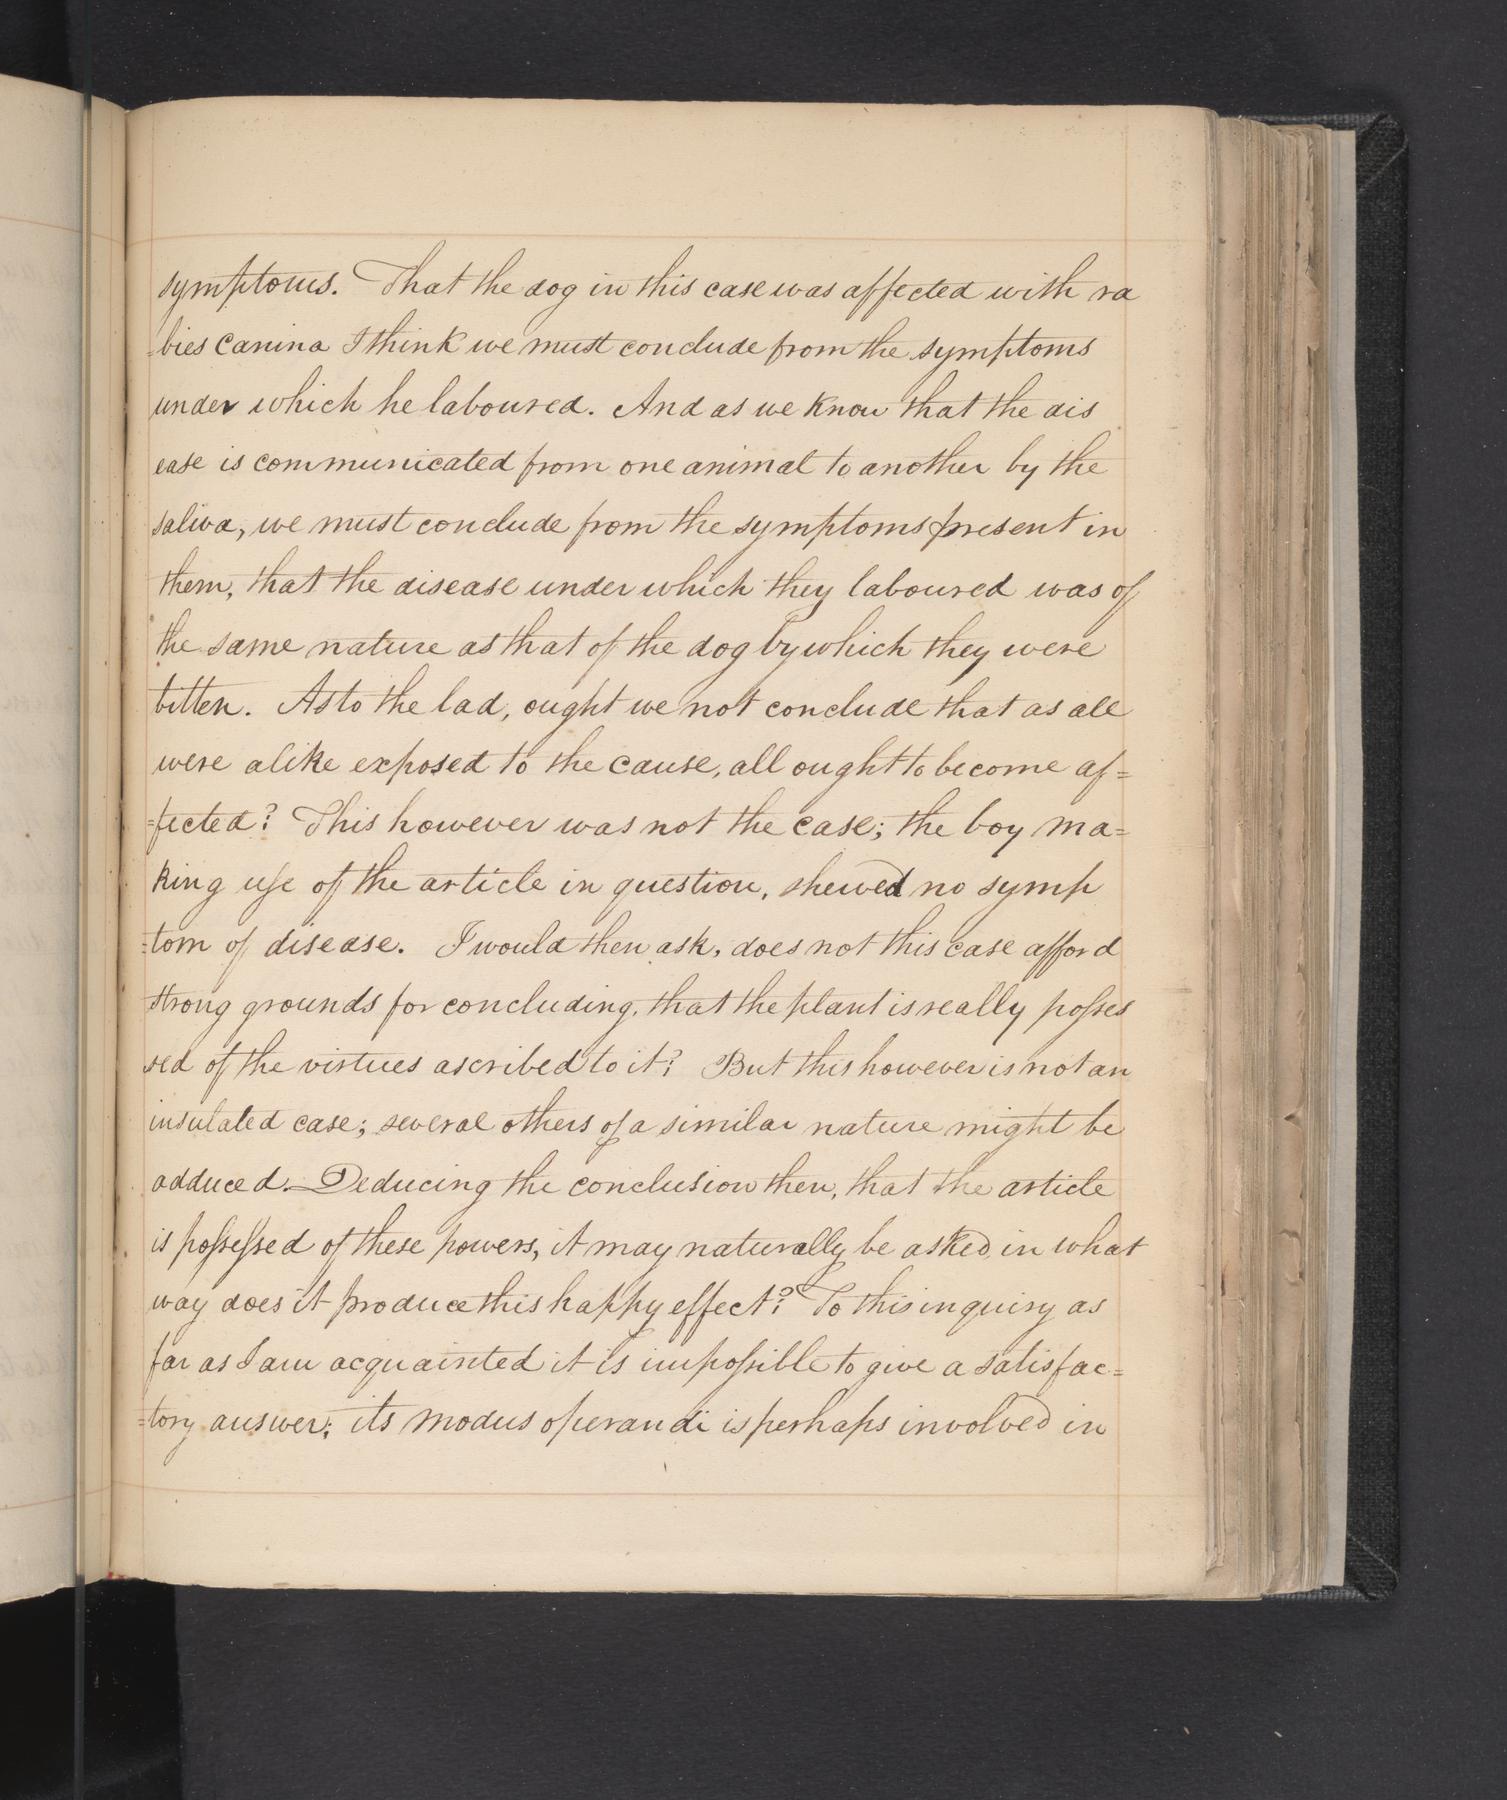 symptoms. That the dog in this case was affected with ra
=bies canina I think we must conclude from the symptoms
under which he laboured. And as we know that the dis
ease is communicated from one animal to another by the
saliva, we must conclude from the symptoms present in
them, that the disease under which they laboured was of
the same nature as that of the dog by which they were
bitten. As to the lad, ought we not conclude that as all
were alike exposed to the cause, all ought to become af=
=fected? This however was not the case; the boy ma=
king use of the article in question, shewed no symp
=tom of disease. I would then ask, does not this case afford
strong grounds for concluding, that the plant is really posses
sed of the virtues ascribed to it? But this however is not an
insulated case; several others of a similar nature might be
adduced. Deducing the conclusion then, that the article
is possessed of these powers, it may naturally be asked in what
way does it produce this happy effect? To this inquiry as
far as I am acquainted it is impossible to give a satisfac=
=tory answer; its modus operandi is perhaps involved in